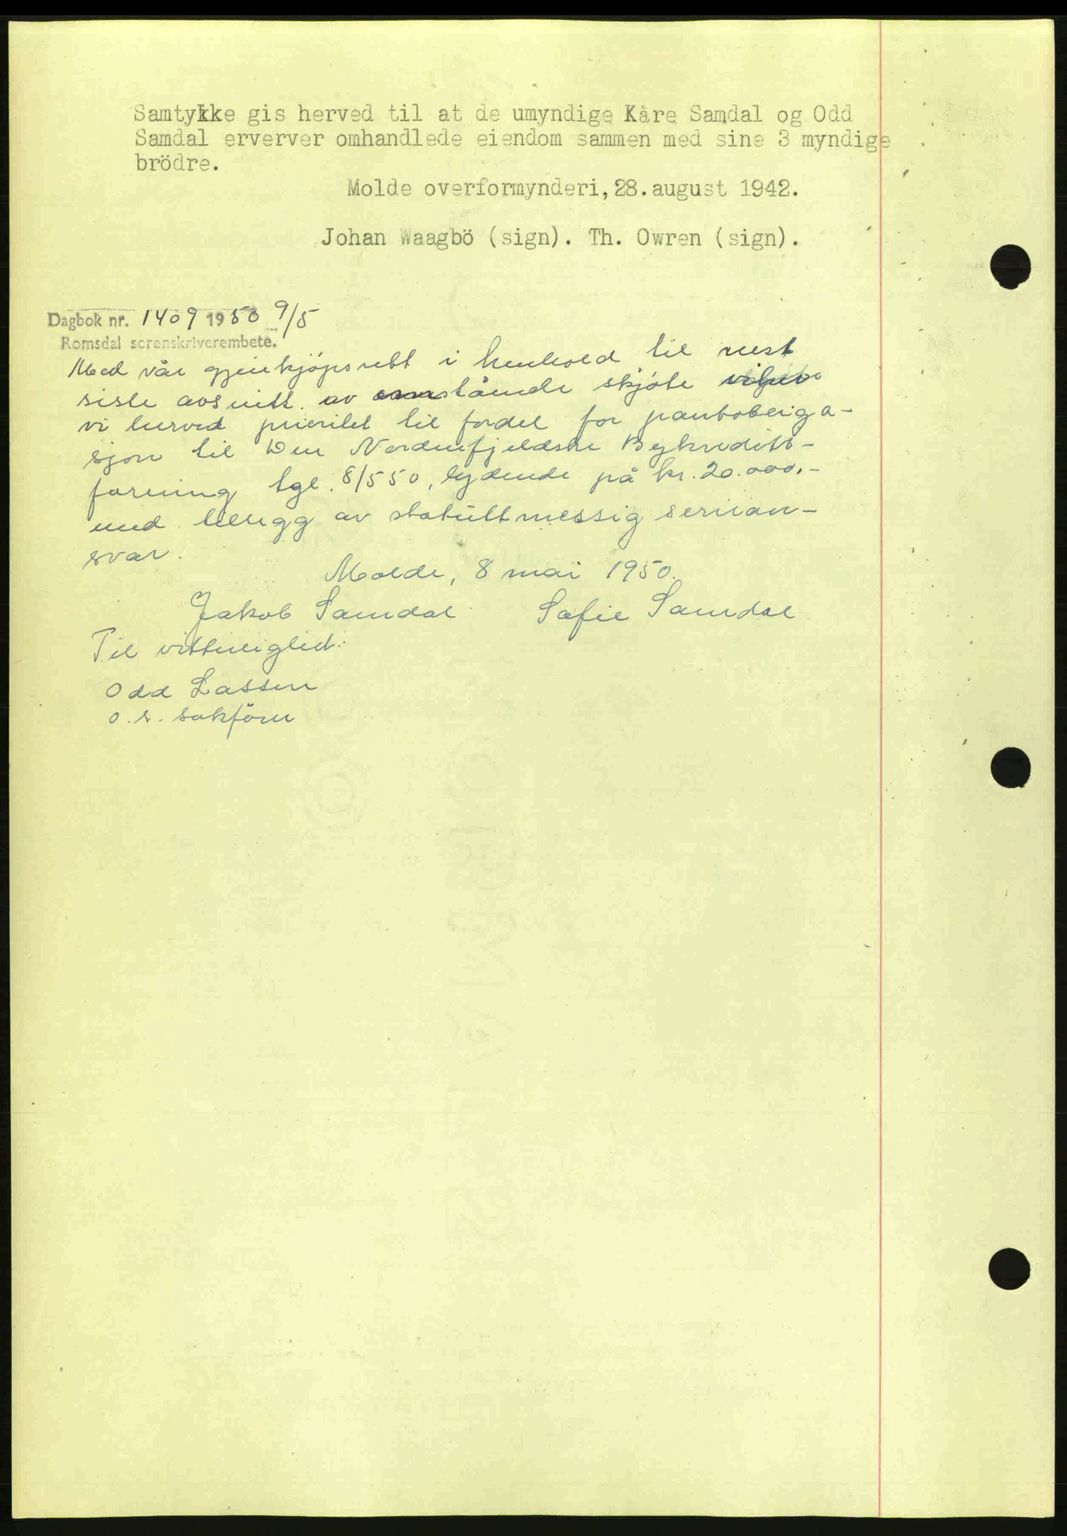 Samtykke gis herved til at de umyndige Kåre Samdal og Odd
Samdal erverver omhandlede eiendom sammen med sine 3 myndige
brödre.
Molde overformynderi, 28. august 1942.
Johan Waagbö (sign). Th. Owren (sign).
Dagbok nr. 1409 1950 9/5
Romsdal sorenskriverembete.
Med vår gjenkjøpsrett i henhold til nest
siste avsnitt av omstående skjøte viker
vi herved prioritet til fordel for pantobliga-
sjon til Den Nordenfjeldske Bykreditt-
forening tgl. 8/5 50, lydende på kr. 20.000,-
med tillegg av statuttmessig serian-
svar.
Molde, 8 mai 1950.
Jakob Samdal Sofie Samdal
Til vitterlighed:
Odd Lassen
o.r. sakförer